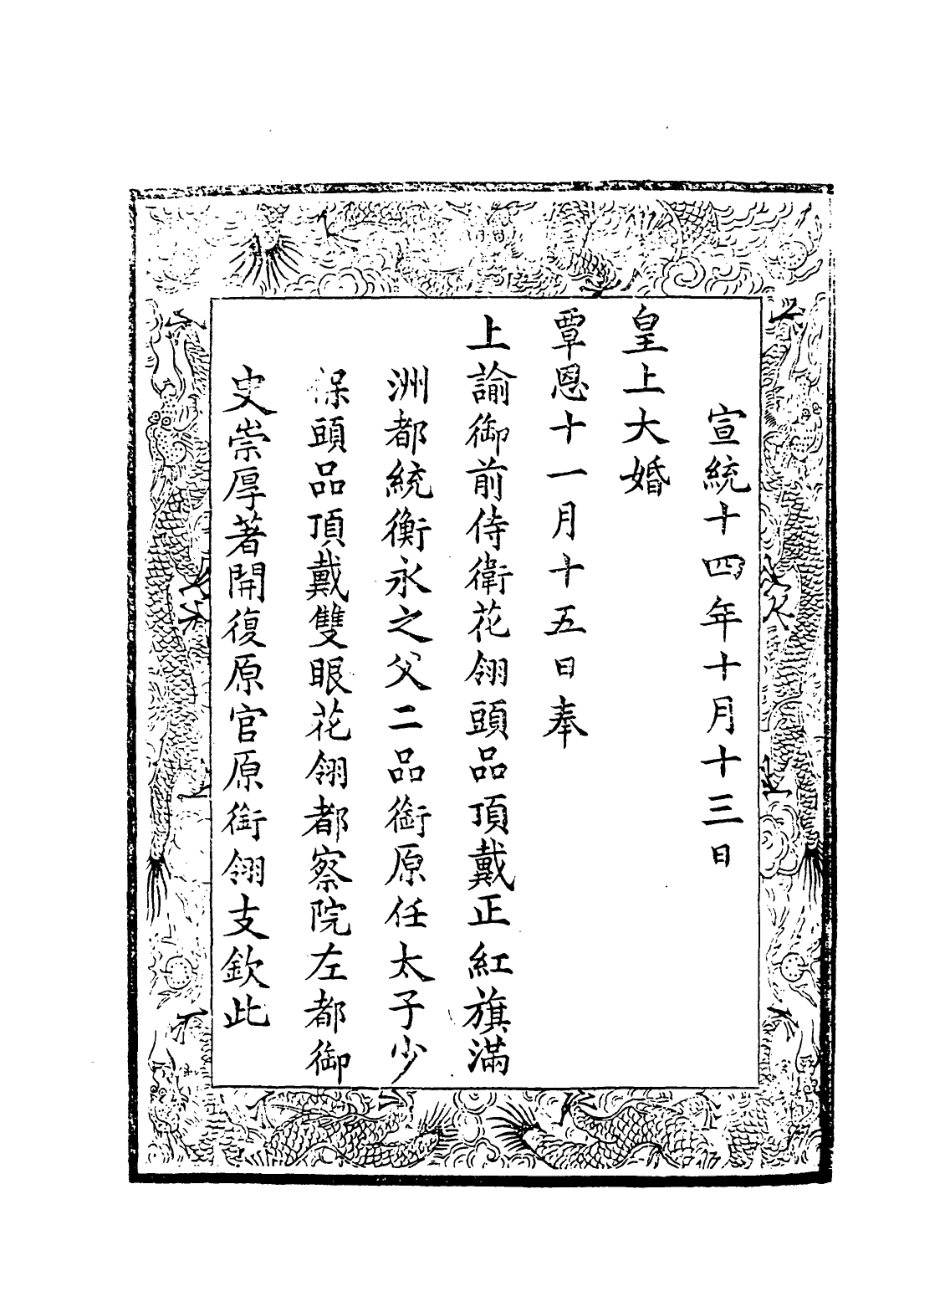 宣統十四年十月十三日
皇上大婚
覃恩十一月十五日奉
上諭御前侍衛花翎頭品頂戴正紅旗滿
洲都統衡永之父二品銜原任太子少
保頭品頂戴雙眼花翎都察院左都御
史崇厚著開復原官原銜翎支欽此